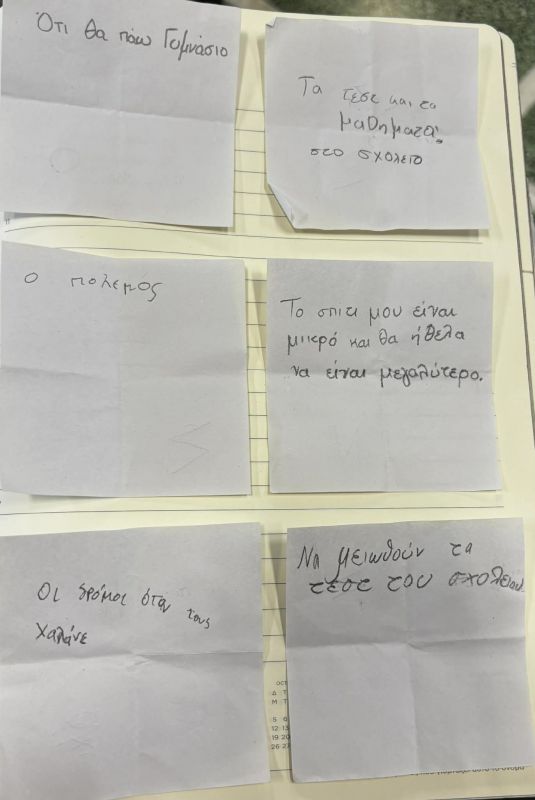 Ότι θα πάω Γυμνάσιο
Τα τεστ και τα
μαθηματα
στο σχολειο
Ο πολεμός
Το σπιτι μου είναι
μικρό και θα ήθελα
να είναι μεγαλύτερο.
Οι δρόμοι όταν τους
χαλάνε
Να μειωθούν τα
τεστ του σχολείου
ΟΚΤ
Δ Τ
Μ Τ
5 6
12 13
19 20
26 27